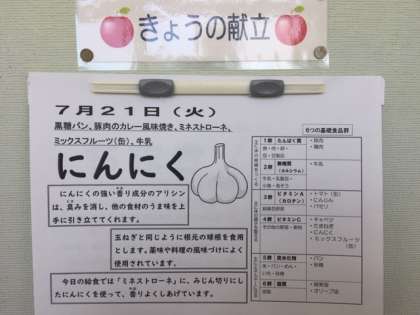 きょうの献立
7月21日（火）
黒糖パン、豚肉のカレー風味焼き、ミネストローネ、
ミックスフルーツ(缶)、牛乳
にんにく
にんにくの強い香り成分のアリシン
は、臭みを消し、他の食材のうま味を上
手に引き立ててくれます。
玉ねぎと同じように根元の球根を食用
とします。薬味や料理の風味づけによく
使用されています。
今日の給食では「ミネストローネ」に、みじん切りにし
たにんにくを使って、香りよくしあげています。
6つの基礎食品群
1群 たんぱく質
・豚肉
2群 無機質
(カルシウム)
・牛乳
3群 ビタミンA
(カロテン)
・トマト(缶)
・にんじん
・パセリ
4群 ビタミンC
・キャベツ
・たまねぎ
・にんにく
・ミックスフルーツ
(缶)
5群 炭水化物
・パン
・砂糖
6群 脂質
・オリーブ油